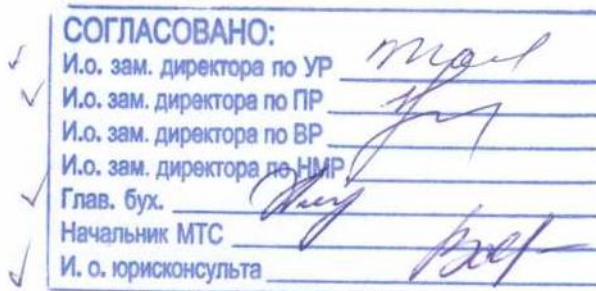 СОГЛАСОВАНО:
И.о. зам. директора по УР
И.о. зам. директора по ПР
И.о. зам. директора по ВР
И.о. зам. директора по НМР
Глав. бух.
Начальник МТС
И. о. юрисконсульта